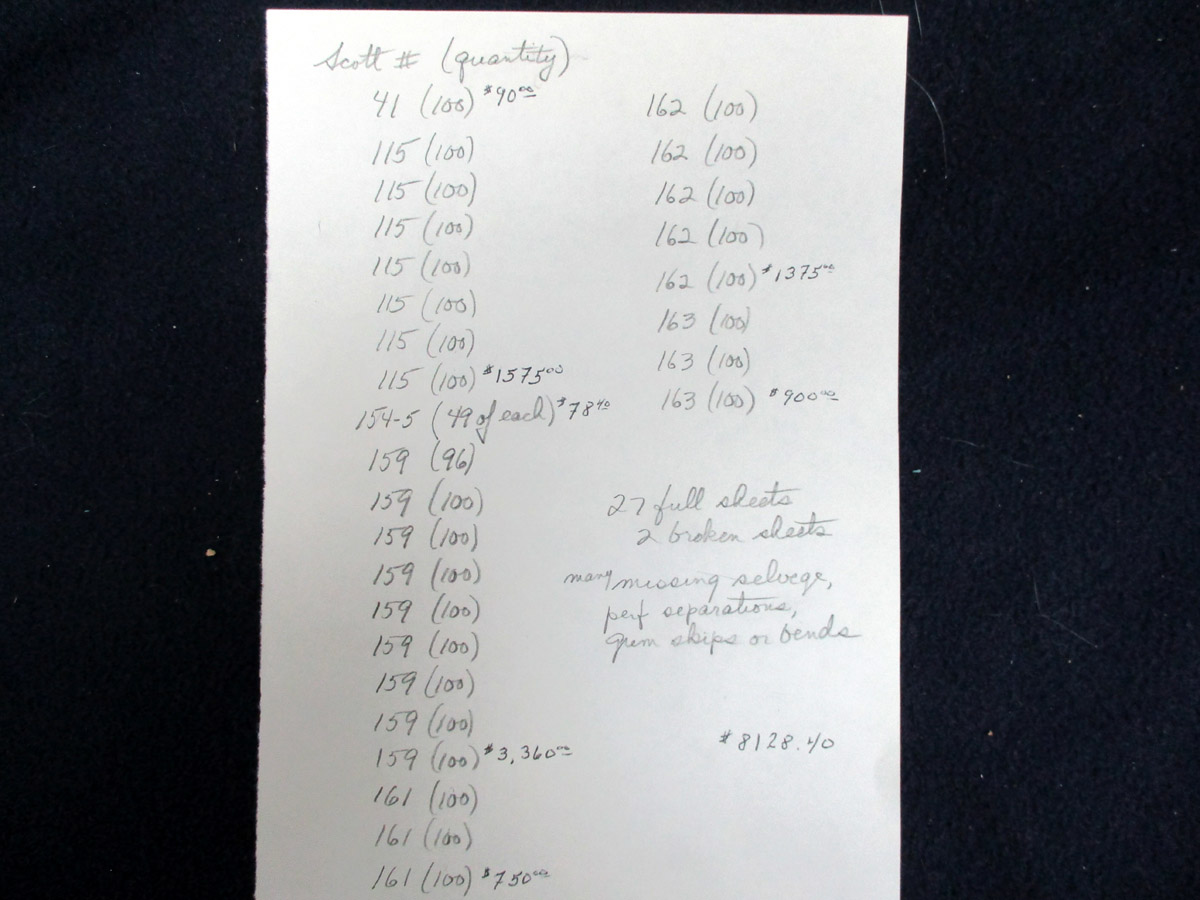 Scott # (quantity)
41 (100) $90.00
115 (100)
115 (100)
115 (100)
115 (100)
115 (100)
115 (100)
115 (100) $1575.00
154-5 (49 of each) $78.40
159 (96)
159 (100)
159 (100)
159 (100)
159 (100)
159 (100)
159 (100)
159 (100)
159 (100) $3,360.00
161 (100)
161 (100)
161 (100) $750.00
162 (100)
162 (100)
162 (100)
162 (100)
162 (100) $1375.00
163 (100)
163 (100)
163 (100) $900.00
27 full sheets
2 broken sheets
many missing selvege,
perf separations,
gum skips or bends
$8128.40